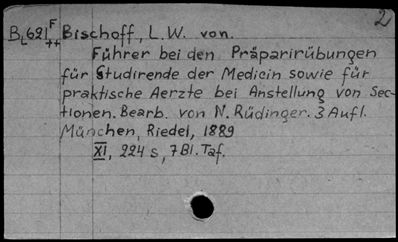 2
BL621 F ++ Bischoff, L.W. von.
Führer bei den Präparirübungen
für Studirende der Medicin sowie für
praktische Aerzte bei Anstellung von Sec-
tionen. Bearb. von N. Rüdinger. 3 Aufl.
München, Riedel, 1889
XI, 224 s, 7 Bl. Taf.